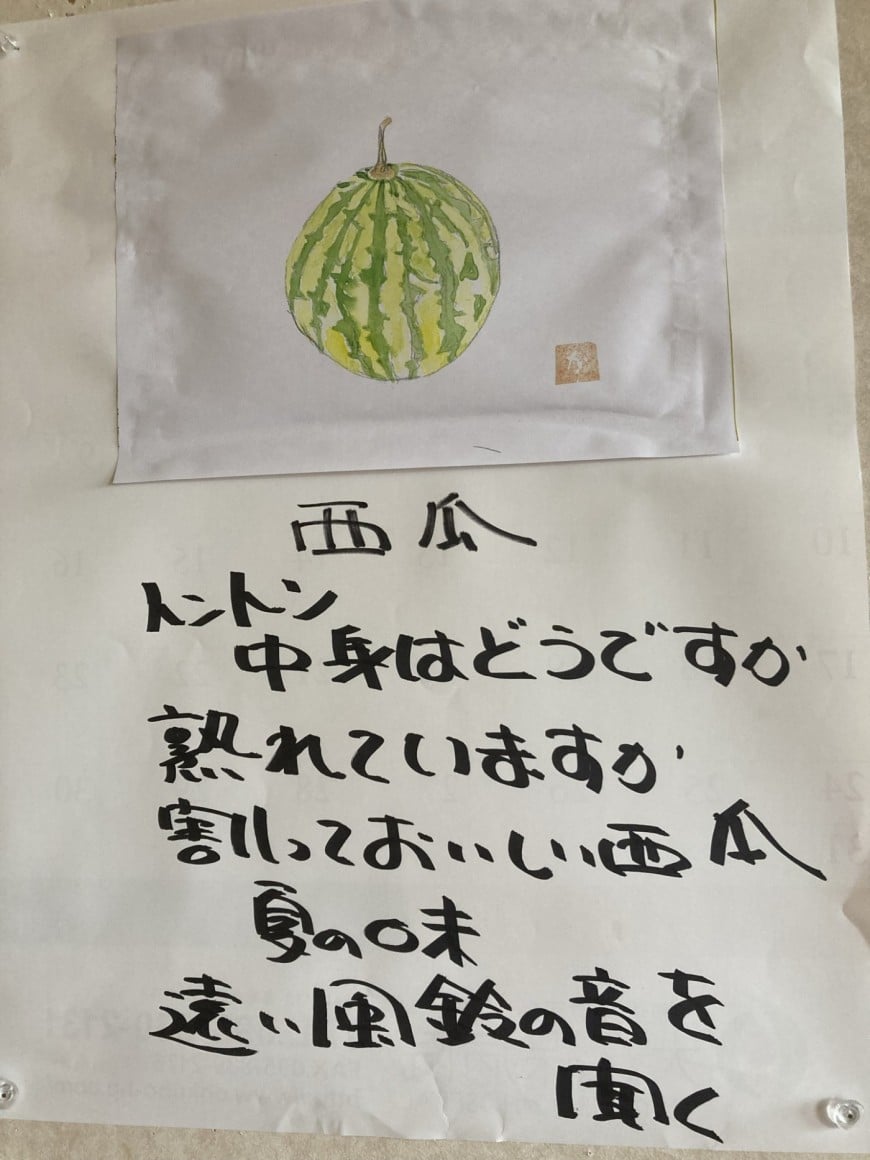 西瓜
トントン
中身はどうですか
熟れていますか
割っておいしい西瓜
夏の味
遠い風鈴の音を
聞く